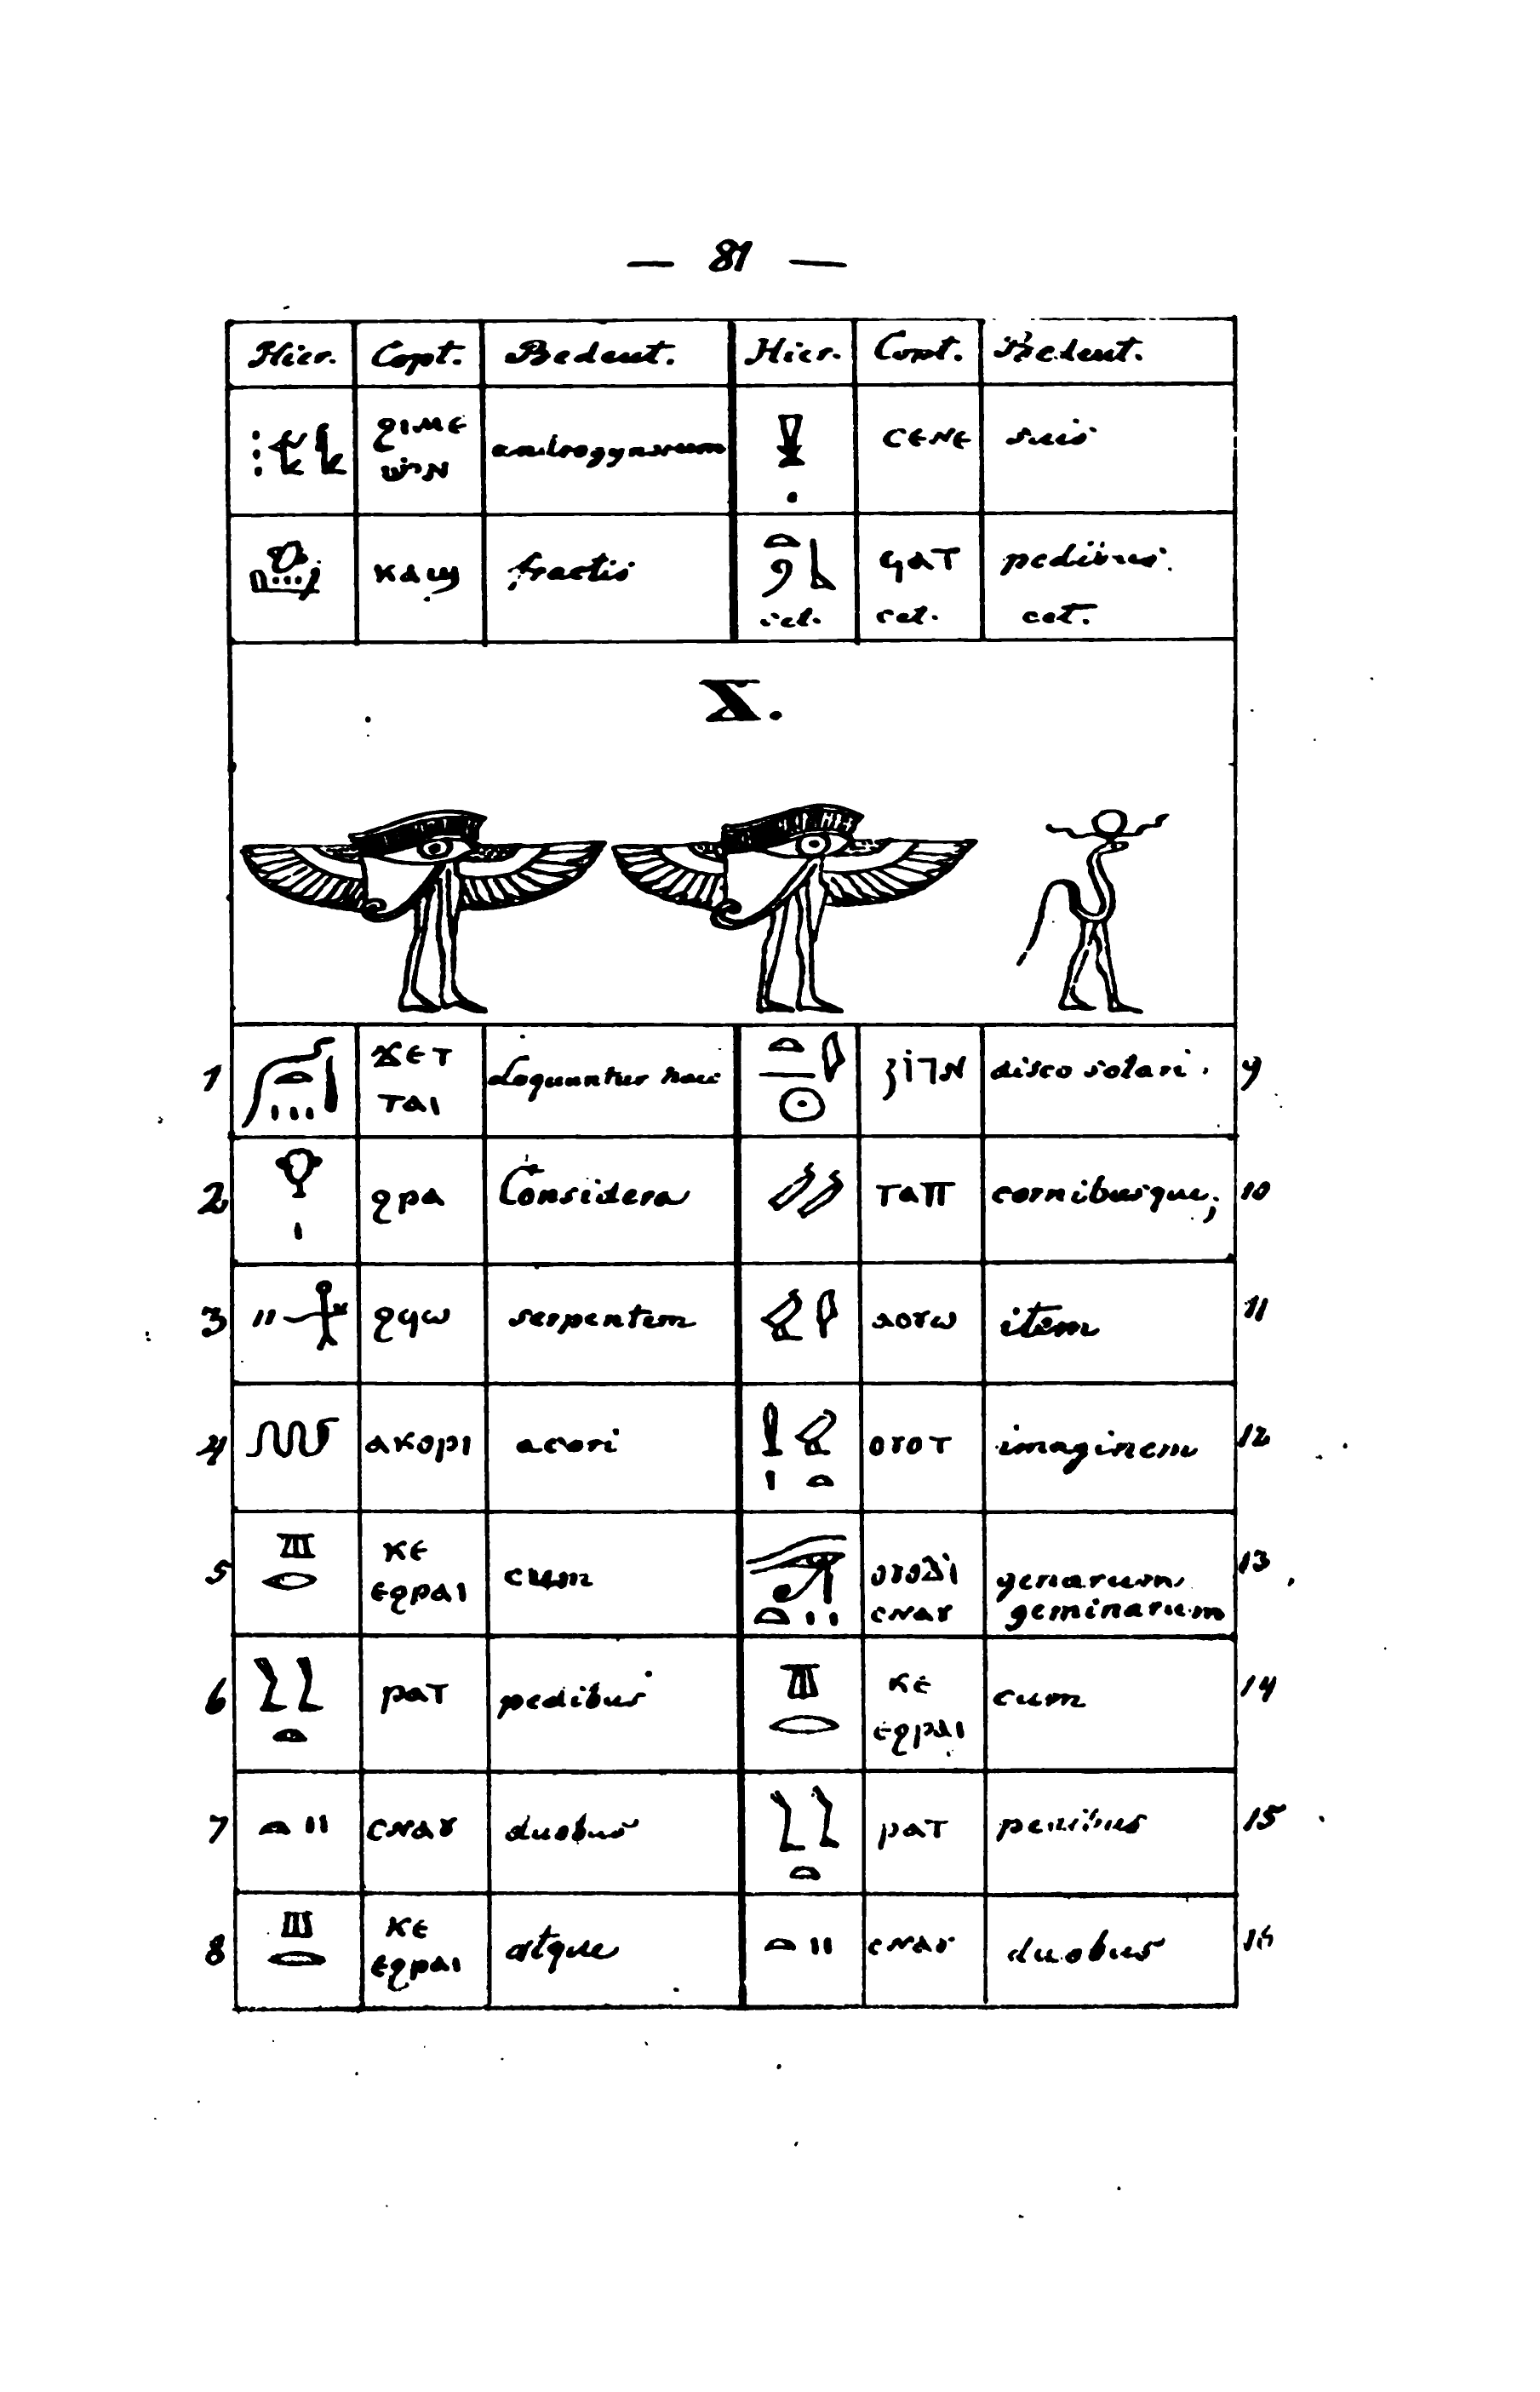 — 81 —
Hier. Copt. Bedeut. Hier. Copt. Bedeut.
ϩⲓⲙⲉ androgynorum ⲥⲉⲛⲉ suis
ⲕⲁϣ fractis ϥⲁⲧ pedibus
cet. cet. cet.
X.
1 ϫⲉⲧ ⲧⲁⲓ Loquuntur haec
disco solari. 9
2 ϩⲣⲁ Considera
ⲧⲁⲡ cornibusque; 10
3 ϩϥⲱ serpentem
ⲁⲟⲩⲱ item 11
4 ⲁⲕⲟⲣⲓ acori
ⲟⲩⲟⲧ imaginem 12
5 ⲕⲉ ⲉϩⲣⲁⲓ cum
ⲥⲛⲁⲩ genarum geminarum 13
6 ⲣⲁⲧ pedibus
ⲕⲉ ⲉϩⲣⲁⲓ cum 14
7 ⲥⲛⲁⲩ duobus
ⲣⲁⲧ pedibus 15
8 ⲕⲉ ⲉϩⲣⲁⲓ atque
ⲥⲛⲁⲩ duobus 16